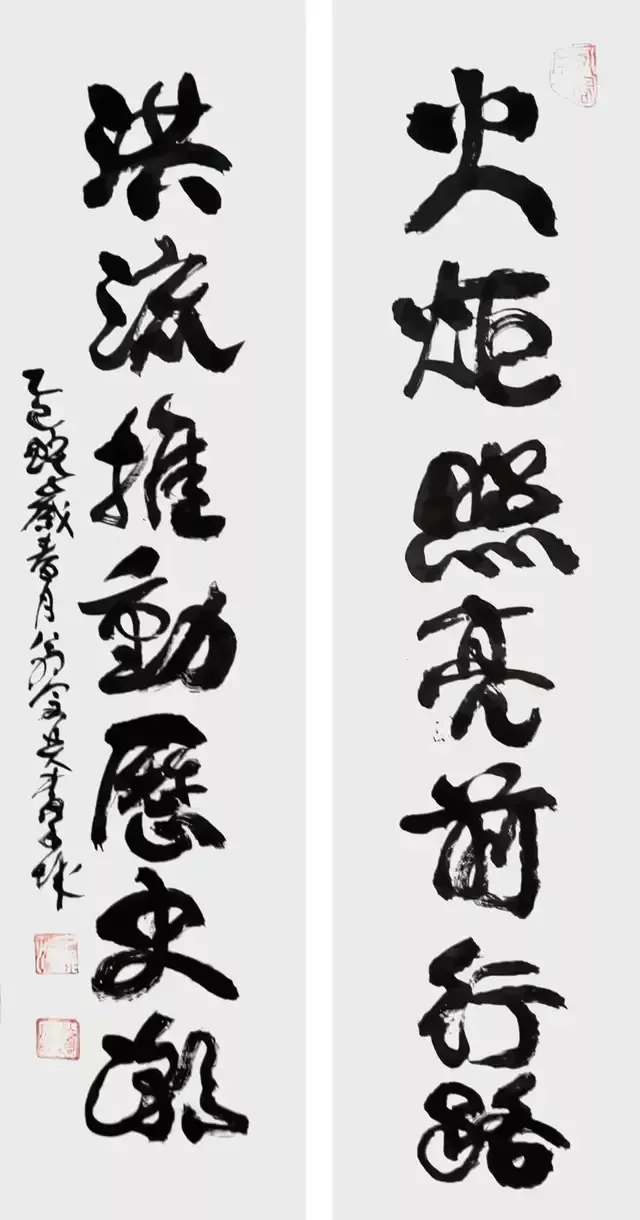 火炬照亮前行路
洪流推動歷史潮
乙巳蛇歲春月